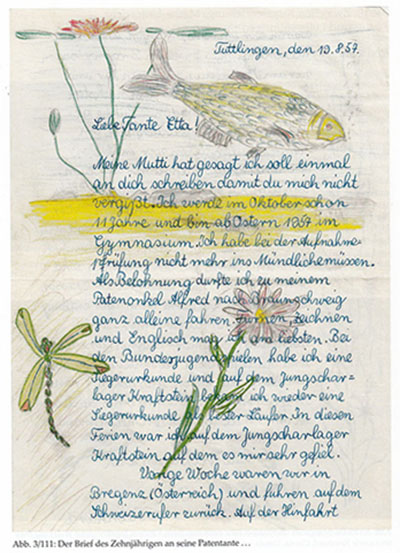 Tuttlingen, den 19.8.57.
Liebe Tante Etta!
Meine Mutti hat gesagt ich soll einmal
an dich schreiben damit du mich nicht
vergißt. Ich werde im Oktober schon
11 Jahre und bin ab Ostern 1957 im
Gymnasium. Ich habe bei der Aufnahme=
prüfung nicht mehr ins Mündliche müssen.
Als Belohnung durfte ich zu meinem
Patenonkel Alfred nach Braunschweig
ganz alleine fahren. Turnen, zeichnen
und Englisch mag ich am liebsten. Bei
den Bundesjugendspielen habe ich eine
Siegerurkunde und auf dem Jungschar=
lager Kraftstein bekam ich wieder eine
Siegerurkunde als bester Läufer. In diesen
Ferien war ich auf dem Jungscharlager
Kraftstein auf dem es mir sehr gefiel.
Vorige Woche waren wir in
Bregenz (Österreich) und fuhren auf dem
Schweizerufer zurück. Auf der Hinfahrt
Abb. 3/111: Der Brief des Zehnjährigen an seine Patentante …